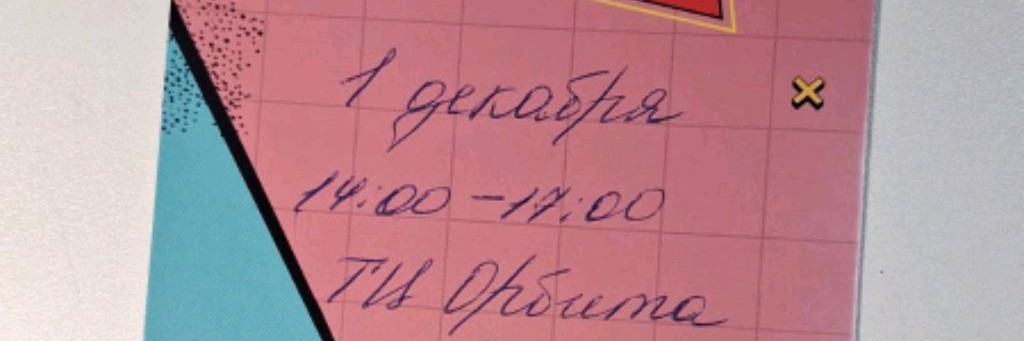 1 декабря
14:00 - 17:00
ТЦ Орбита